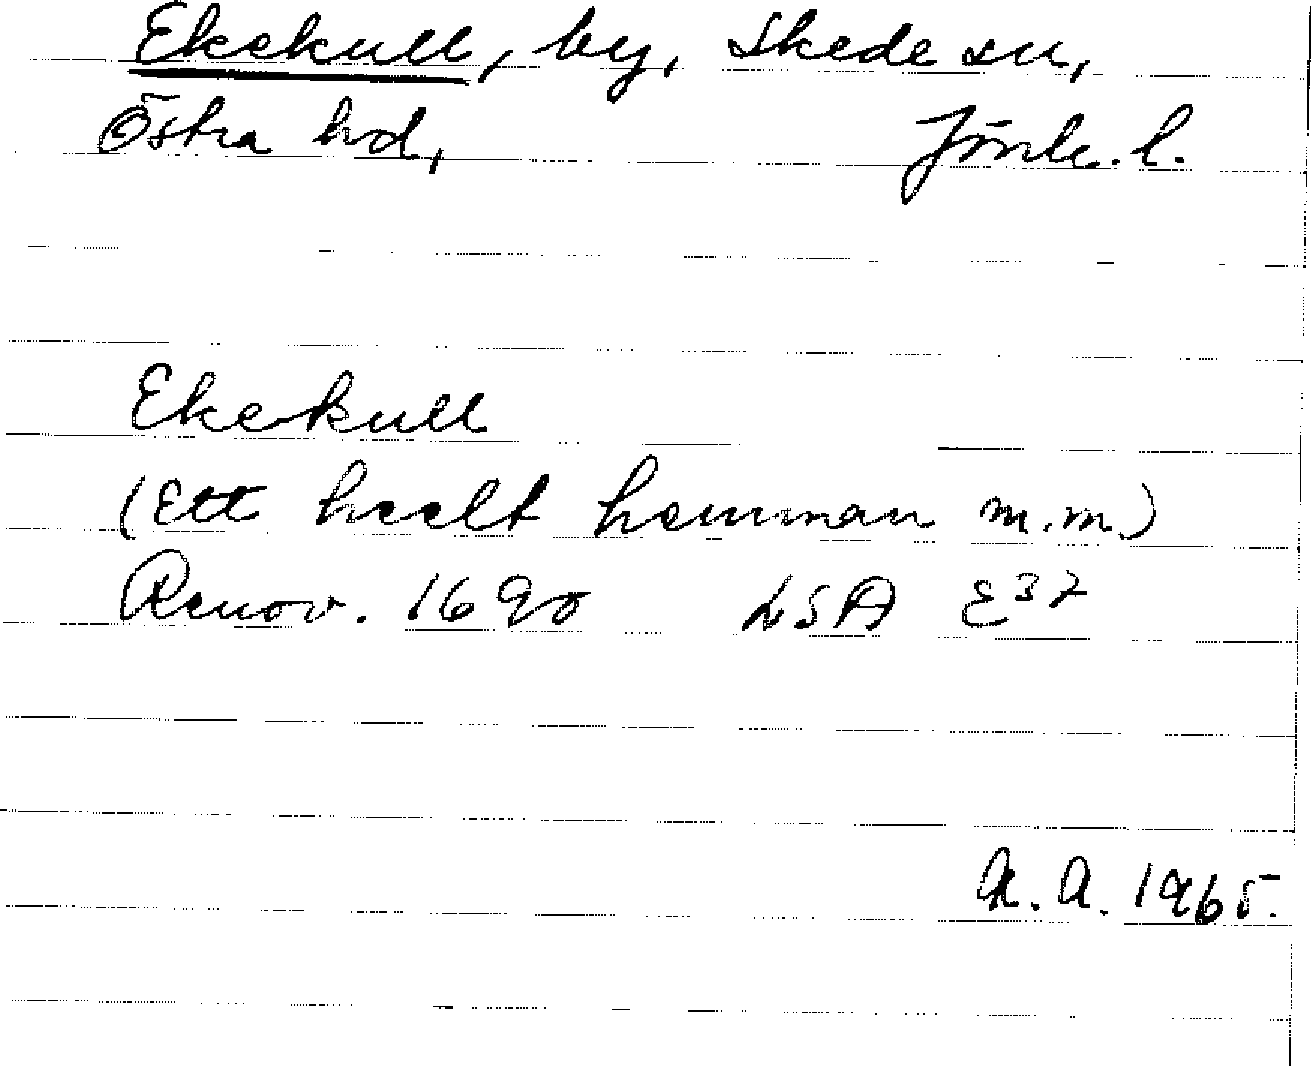 Ekekull, by, Skede sn,
Östra hd, Jönk. l.
Ekekull
(Ett heelt hemman m.m.)
Renov. 1690 LSA E37
A. 1965.